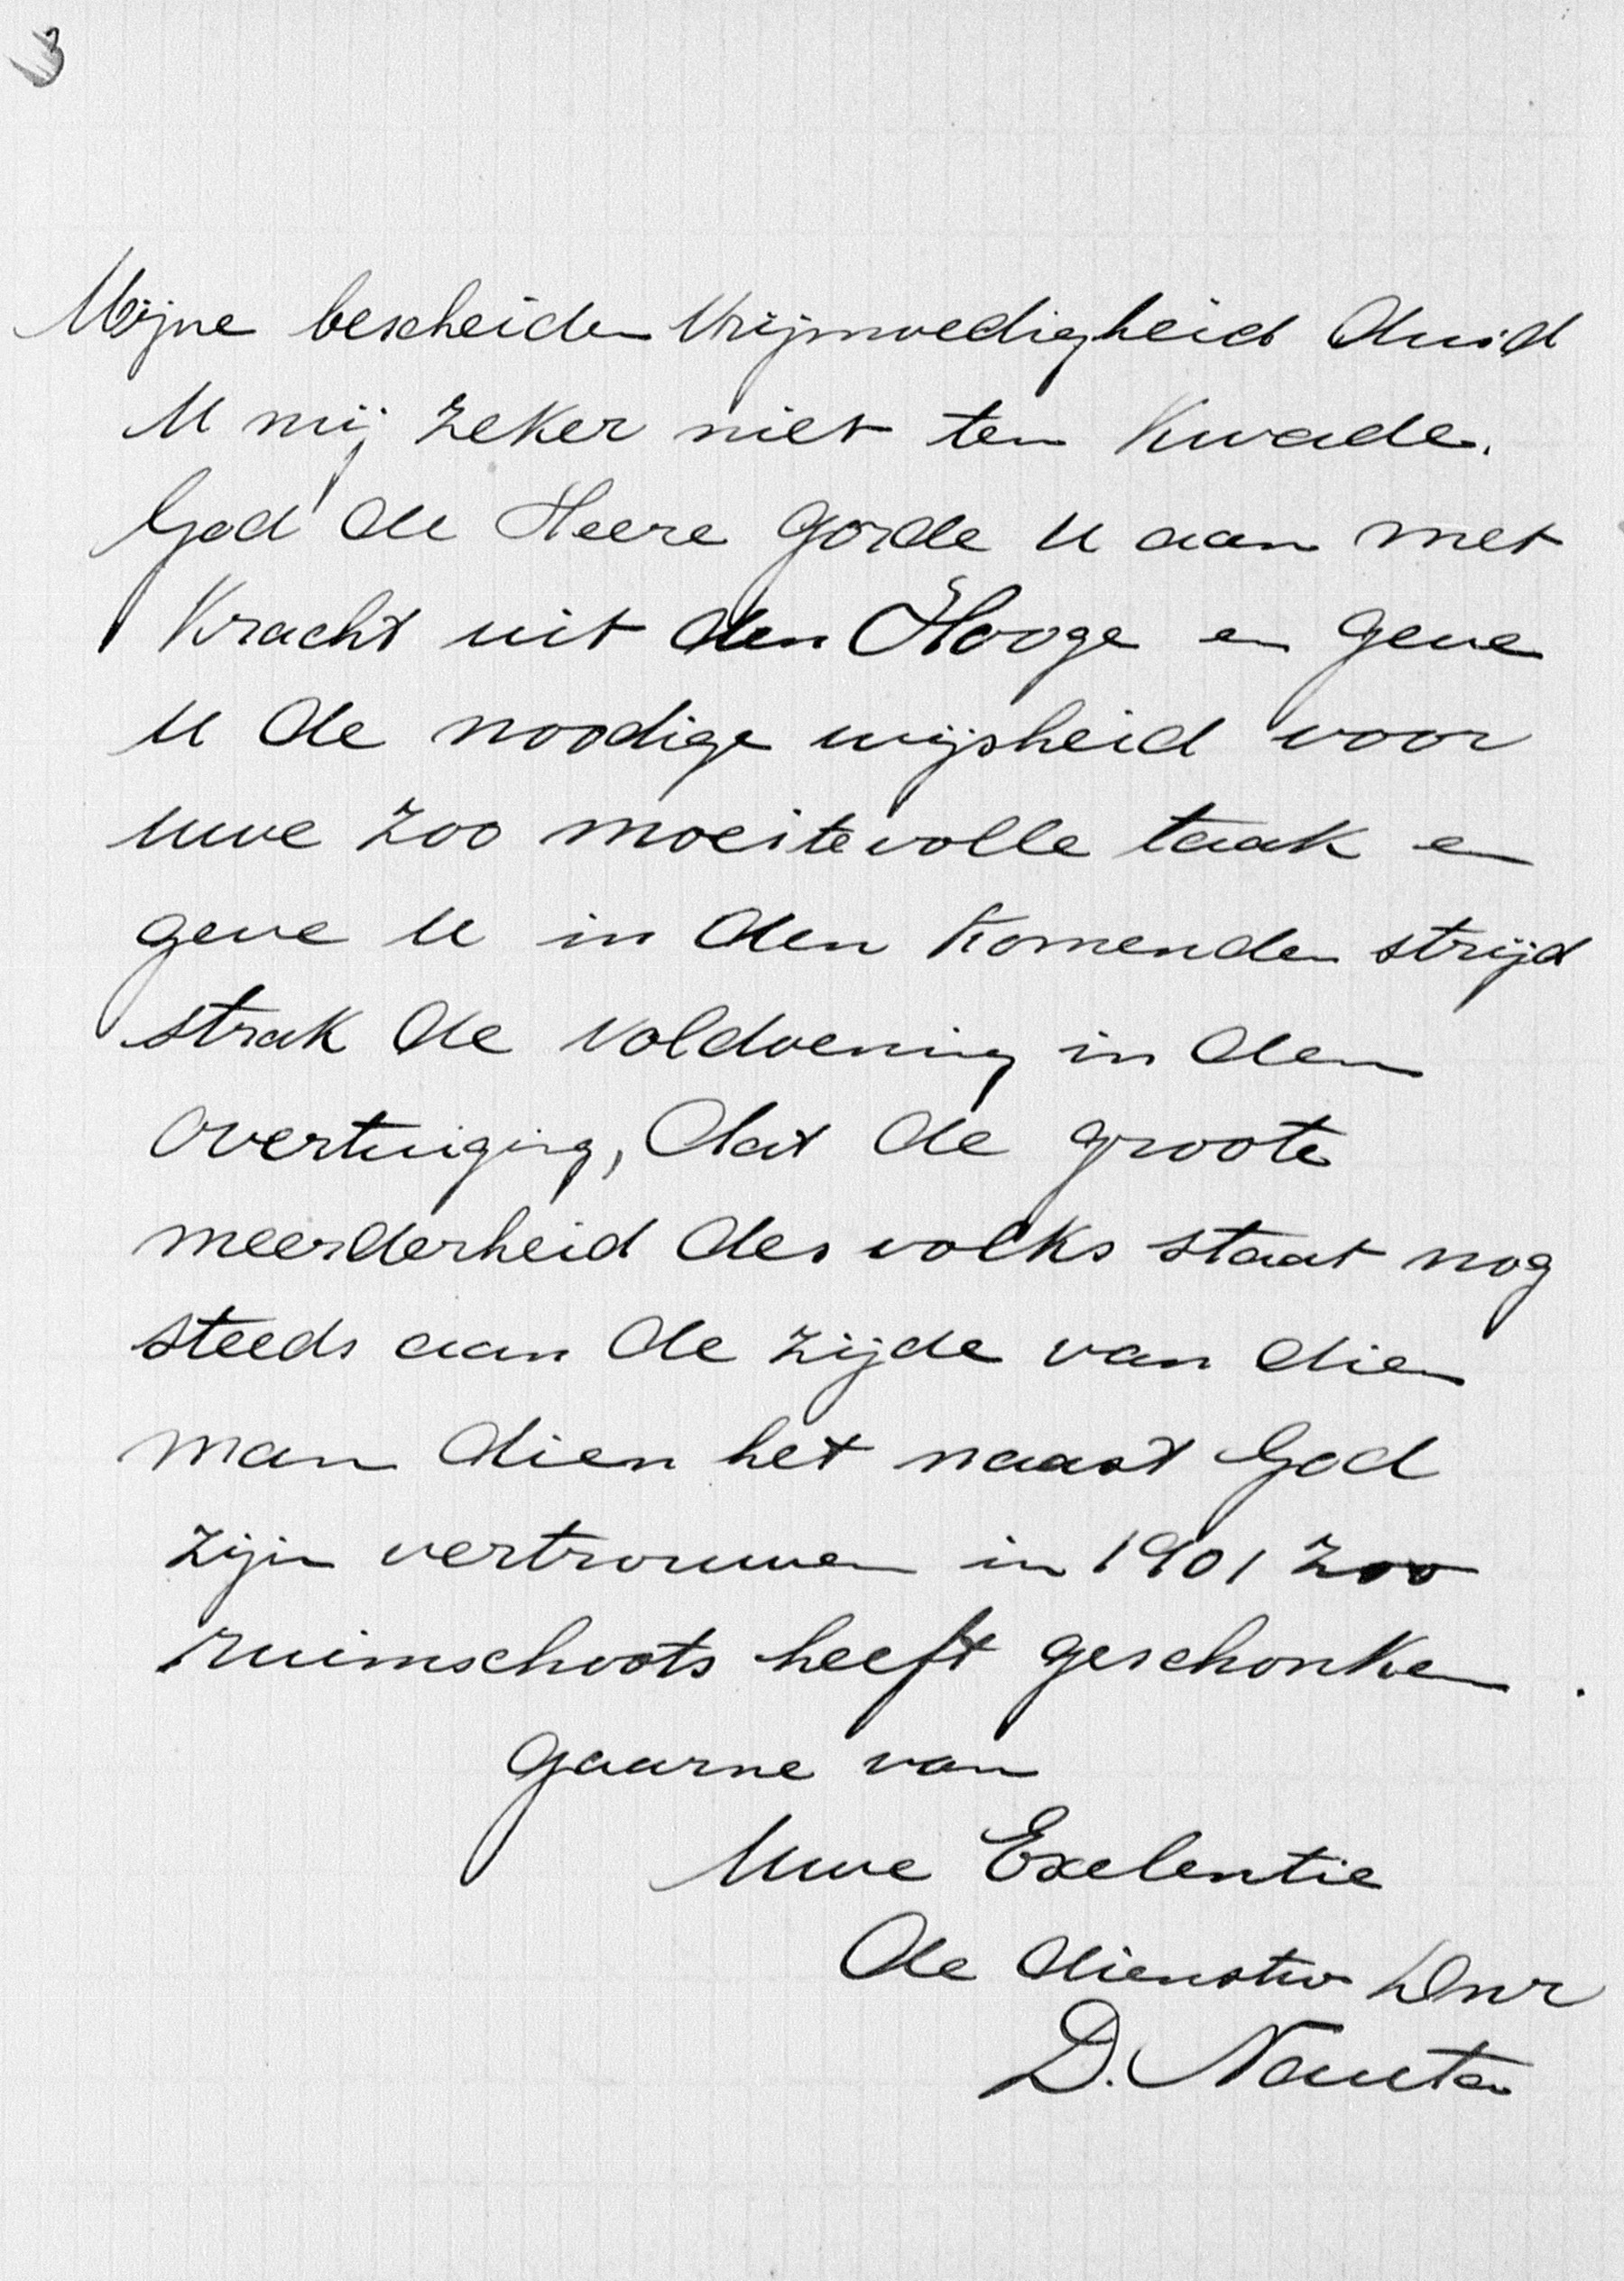 3
Mijne bescheiden vrijmoedigheid duid
U mij zeker niet ten kwade.
God de Heere gorde U aan met
kracht uit den Hooge en geve
U de noodige wijsheid voor
uwe zoo moeitevolle taak en
geve U in den komenden strijd
strak de voldoening in den
overtuiging, dat de groote
meerderheid des volks staat nog
steeds aan de zijde van dien
man dien het naast God
zijn vertrouwen in 1901 zoo
ruimschoots heeft geschonken.
Gaarne van
Uwe Exelentie
de dienstw Dnr
D. Nauta